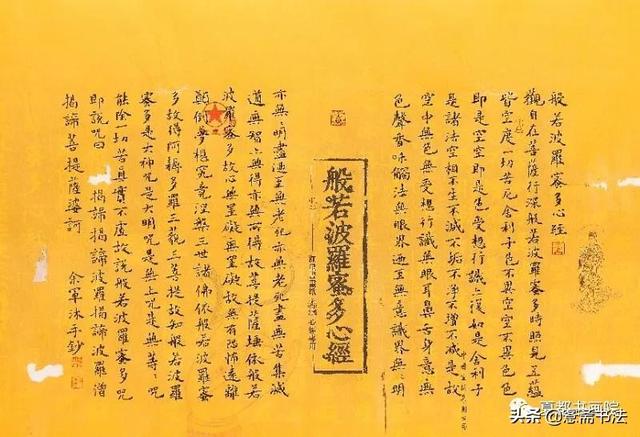 般若波羅蜜多心經
觀自在菩薩行深般若波羅蜜多時照見五蘊
皆空度一切苦厄舍利子色不異空空不異色色
即是空空即是色受想行識亦復如是舍利子
是諸法空相不生不滅不垢不淨不增不減是故
空中無色無受想行識無眼耳鼻舌身意無
色聲香味觸法無眼界乃至無意識界無無明
般若波羅蜜多心經
亦無無明盡乃至無老死亦無老死盡無苦集滅
道無智亦無得亦無所得故菩提薩埵依般若
波羅蜜多故心無罣礙無罣礙故無有恐怖遠離
顛倒夢想究竟涅槃三世諸佛依般若波羅蜜
多故得阿耨多羅三藐三菩提故知般若波羅
蜜多是大神咒是大明咒是無上咒是無等等咒
能除一切苦真實不虛故說般若波羅蜜多咒
即說咒曰 揭諦揭諦波羅揭諦波羅僧
揭諦菩提薩婆訶 余軍沐手鈔
夏都书画院
头条@愙斋书法